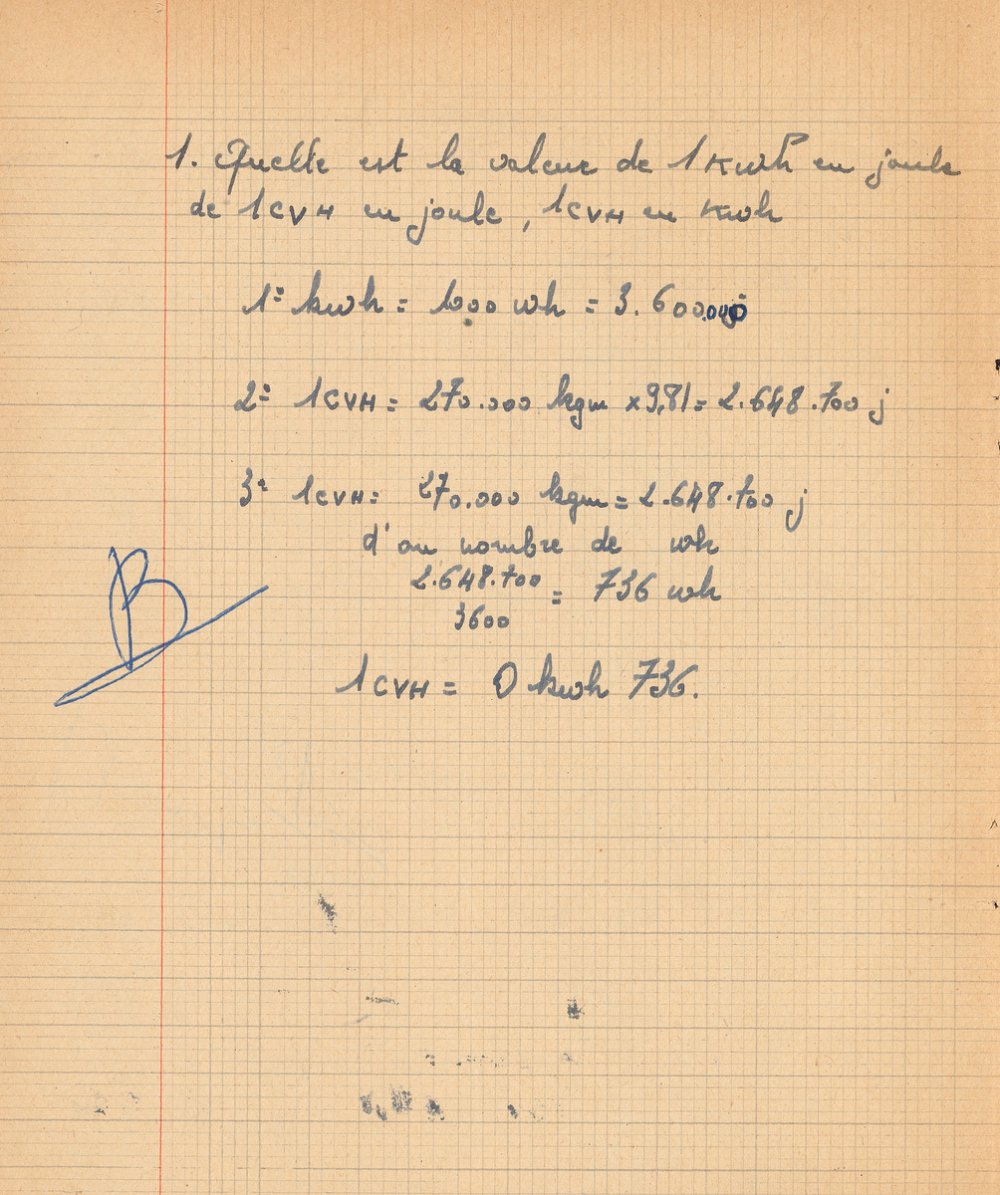 1. Quelle est la valeur de 1 Kwh en joule
de 1CVH en joule, 1CVH en Kwh
1º kwh = 1000 wh = 3.600.000 j
2º 1CVH = 270.000 kgm x 9,81 = 2.648.700 j
3º 1CVH = 270.000 kgm = 2.648.700 j
d'ou nombre de wh
2.648.700
= 736 wh
3600
1CVH = 0 kwh 736.
B